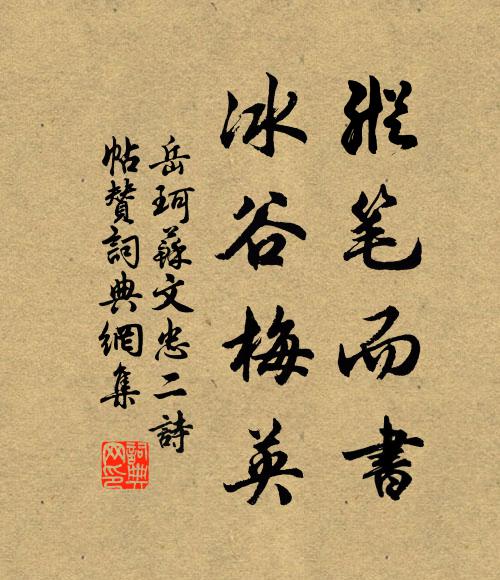 縱笔而書
冰谷梅英
岳珂蘇文忠二詩
帖贊詞典網集
詞典網印